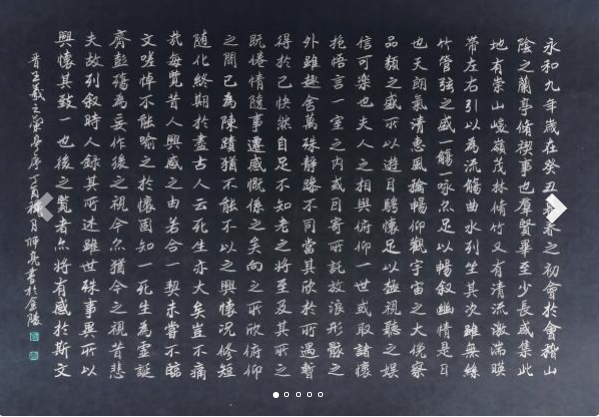 永和九年歲在癸丑春之初會於會稽山
陰之蘭亭脩禊事也羣賢畢至少長咸集此
地有崇山峻嶺茂林脩竹又有清流激湍暎
帶左右引以為流觴曲水列坐其次雖無絲
竹管弦之盛一觴一詠亦足以暢敘幽情是日
也天朗氣清惠風暢仰觀宇宙之大俛察
品類之盛所以遊目騁懷足以極視聽之娛
信可樂也夫人之相與俯仰一世或取諸懷
抱悟言一室之內或因寄所託放浪形骸之
外雖趣舍萬殊靜躁不同當其欣於所遇暫
得於己快然自足不知老之將至及其所之
既倦情隨事遷感慨係之矣向之所欣俯仰
之間已為陳蹟猶不能不以之興懷況修短
隨化終期於盡古人云死生亦大矣豈不痛
哉每覽昔人興感之由若合一契未嘗不臨
文嗟悼不能喻之於懷固知一死生為虛誕
齊彭殤為妄作後之視今亦猶今之視昔悲
夫故列敘時人錄其所述雖世殊事異所以
興懷其致一也後之覽者亦將有感於斯文
晉王羲之蘭亭序丁酉月師亮書於金陵